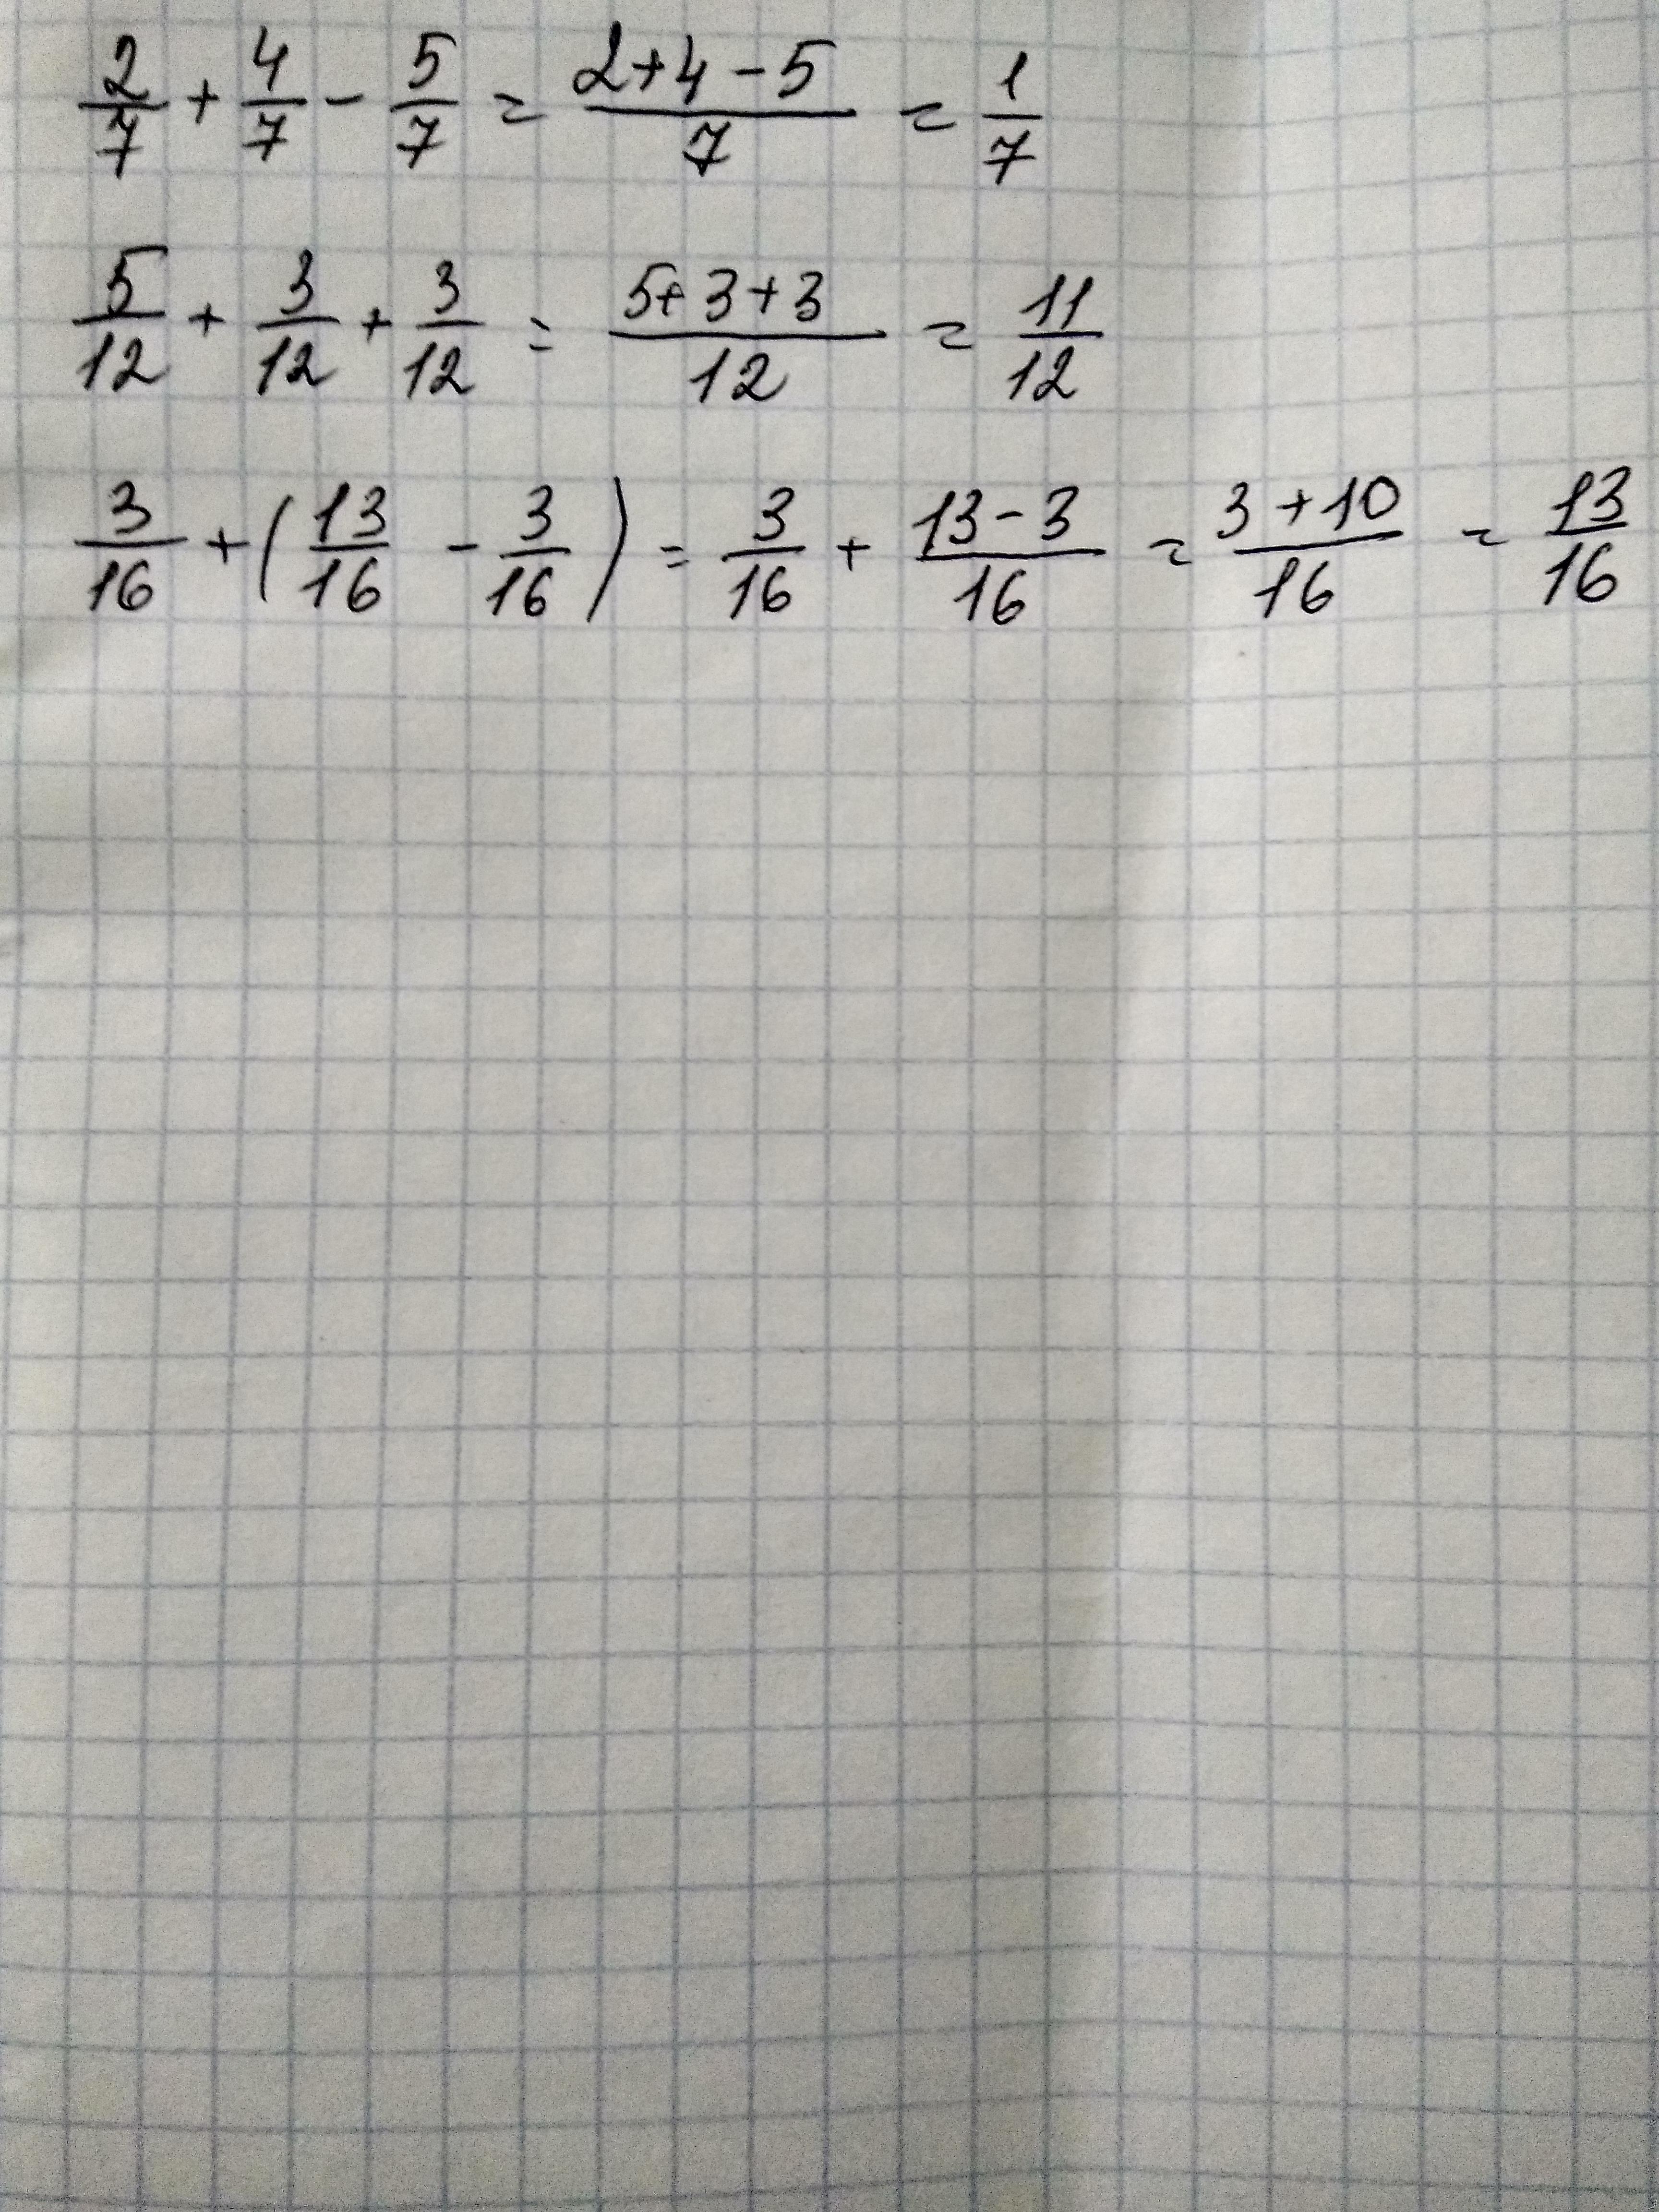 2/7 + 4/7 - 5/7 = (2+4-5)/7 = 1/7
5/12 + 3/12 + 3/12 = (5+3+3)/12 = 11/12
3/16 + (13/16 - 3/16) = 3/16 + (13-3)/16 = (3+10)/16 = 13/16